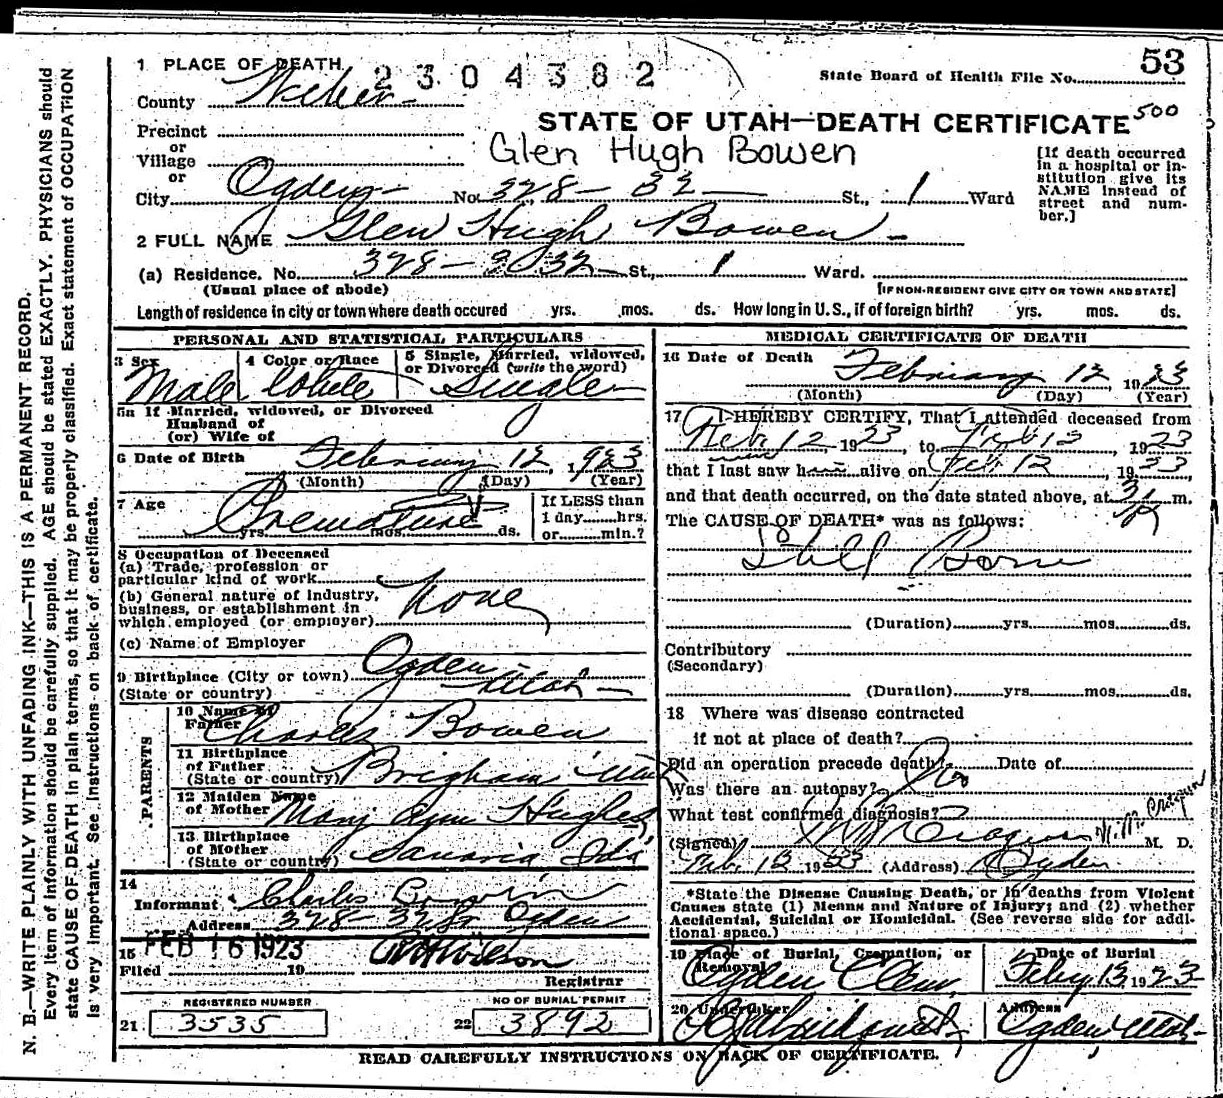 53
1 PLACE OF DEATH
2304382
State Board of Health File No.
County Weber
500
STATE OF UTAH—DEATH CERTIFICATE
Precinct
or
Village
or
Glen Hugh Bowen
[If death occurred
in a hospital or in-
stitution give its
NAME instead of
street and num-
ber.]
City Ogden No. 328 – 32 St., 1 Ward
2 FULL NAME Glen Hugh Bowen
(a) Residence. No. 328 – 32 St., 1 Ward.
(Usual place of abode)
[IF NON-RESIDENT GIVE CITY OR TOWN AND STATE]
Length of residence in city or town where death occured yrs. mos. ds. How long in U. S., if of foreign birth? yrs. mos. ds.
PERSONAL AND STATISTICAL PARTICULARS
3 Sex
Male
4 Color or Race
White
5 Single, Married, widowed,
or Divorced (write the word)
Single
5a If Married, widowed, or Divorced
Husband of
(or) Wife of
6 Date of Birth February 12, 1923
(Month) (Day) (Year)
7 Age
Premature
yrs. mos. ds.
If LESS than
1 day hrs.
or min.?
8 Occupation of Deceased
(a) Trade, profession or
particular kind of work
(b) General nature of industry,
business, or establishment in
which employed (or employer)
None
(c) Name of Employer
9 Birthplace (City or town) Ogden
(State or country) Utah
PARENTS
10 Name of
Father Charles Bowen
11 Birthplace
of Father
(State or country) Brigham Utah
12 Maiden Name
of Mother Mary Ann Hughes
13 Birthplace
of Mother
(State or country) Ida
14
Informant Charles Bowen
Address 328 – 32 St Ogden
15 FEB 16 1923
Filed 19
R H Wilson
Registrar
REGISTERED NUMBER
21 3535
NO OF BURIAL PERMIT
22 3892
MEDICAL CERTIFICATE OF DEATH
16 Date of Death February 12 1923
(Month) (Day) (Year)
17 I HEREBY CERTIFY, That I attended deceased from
Feb 12 1923, to Feb 12, 1923
that I last saw h alive on Feb 12, 1923
and that death occurred, on the date stated above, at 3 m.
The CAUSE OF DEATH* was as follows:
Still Born
(Duration) yrs. mos. ds.
Contributory
(Secondary)
(Duration) yrs. mos. ds.
18 Where was disease contracted
if not at place of death?
Did an operation precede death? No Date of
Was there an autopsy?
What test confirmed diagnosis?
(Signed) Cragun M. D.
Feb. 12 1923 (Address) Ogden
*State the Disease Causing Death, or in deaths from Violent
Causes state (1) Means and Nature of Injury; and (2) whether
Accidental, Suicidal or Homicidal. (See reverse side for addi-
tional space.)
19 Place of Burial, Cremation, or
Removal
Ogden Cem.
Date of Burial
Feby 13 1923
20 Undertaker
Address
Ogden, Utah
READ CAREFULLY INSTRUCTIONS ON BACK OF CERTIFICATE.
N. B.—WRITE PLAINLY WITH UNFADING INK—THIS IS A PERMANENT RECORD.
Every item of information should be carefully supplied. AGE should be stated EXACTLY. PHYSICIANS should
state CAUSE OF DEATH in plain terms, so that it may be properly classified. Exact statement of OCCUPATION
is very important. See instructions on back of certificate.